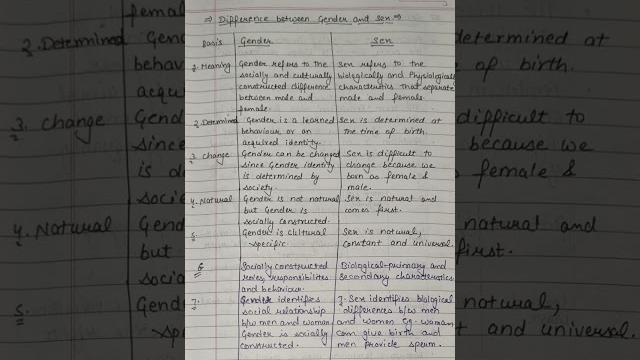 ⇒ Difference between Gender and Sex ⇒
Basis Gender Sex
1. Meaning Gender refers to the Sex refers to the
socially and culturally biologically and Physiological
constructed difference characteristics that separate
between male and male and female.
female.
2. Determined Gender is a learned Sex is determined at
behaviour or an the time of birth.
acquired identity.
3. Change Gender can be changed Sex is difficult to
since Gender identity change because we
is determined by born as female &
society. male.
4. Natural Gender is not natural Sex is natural and
but Gender is comes first.
socially constructed.
5. Gender is cultural Sex is natural,
specific constant and universal.
6 Socially constructed Biological-primary and
roles, responsibilites secondary characteristics.
and behaviour.
7. Gender identifies 7. Sex identifies biological
social relationship differences b/w men
b/w men and women and women Eg. woman
Gender is socially can give birth and
constructed. men provide sperm.